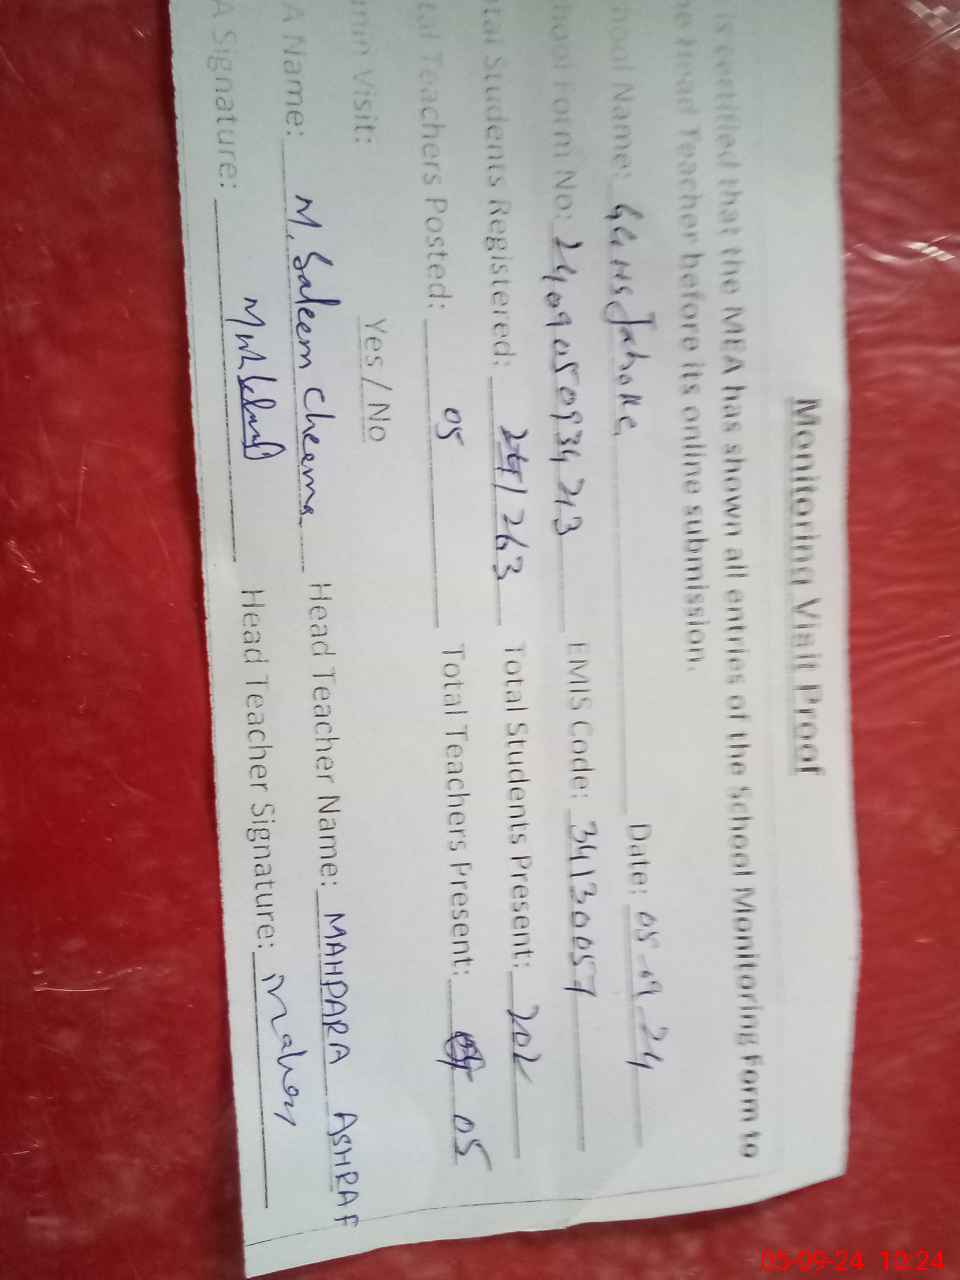 Monitoring Visit Proof
is certified that the MEA has shown all entries of the School Monitoring Form to
he Head Teacher before its online submission.
hool Name: Date: 05-09-24
hool Form No: 2409050934213 EMIS Code: 34130057
tal Students Registered: 263 Total Students Present: 202
tal Teachers Posted: 05 Total Teachers Present: 05
min Visit: Yes / No
A Name: M. Saleem Cheema Head Teacher Name: MAHPARA ASHRAF
A Signature: Head Teacher Signature:
05-09-24 10:24